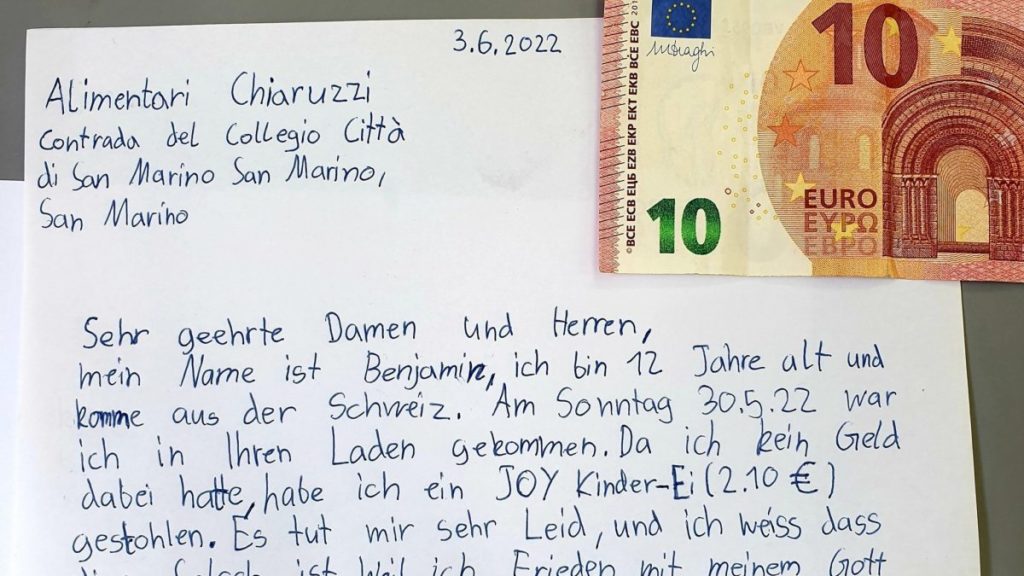 3.6.2022
Alimentari Chiaruzzi
Contrada del Collegio Città
di San Marino San Marino,
San Marino
Sehr geehrte Damen und Herren,
mein Name ist Benjamin, ich bin 12 Jahre alt und
komme aus der Schweiz. Am Sonntag 30.5.22 war
ich in Ihren Laden gekommen. Da ich kein Geld
dabei hatte, habe ich ein JOY Kinder-Ei (2.10 €)
gestohlen. Es tut mir sehr Leid, und ich weiss dass
ist Weil ich Frieden mit meinem Gott
10
MDraghi
©BCE ECB ЕЦБ EZB EKP EKT EKB BCE EBC
10
EURO
ΕΥΡΩ
ЕВРО